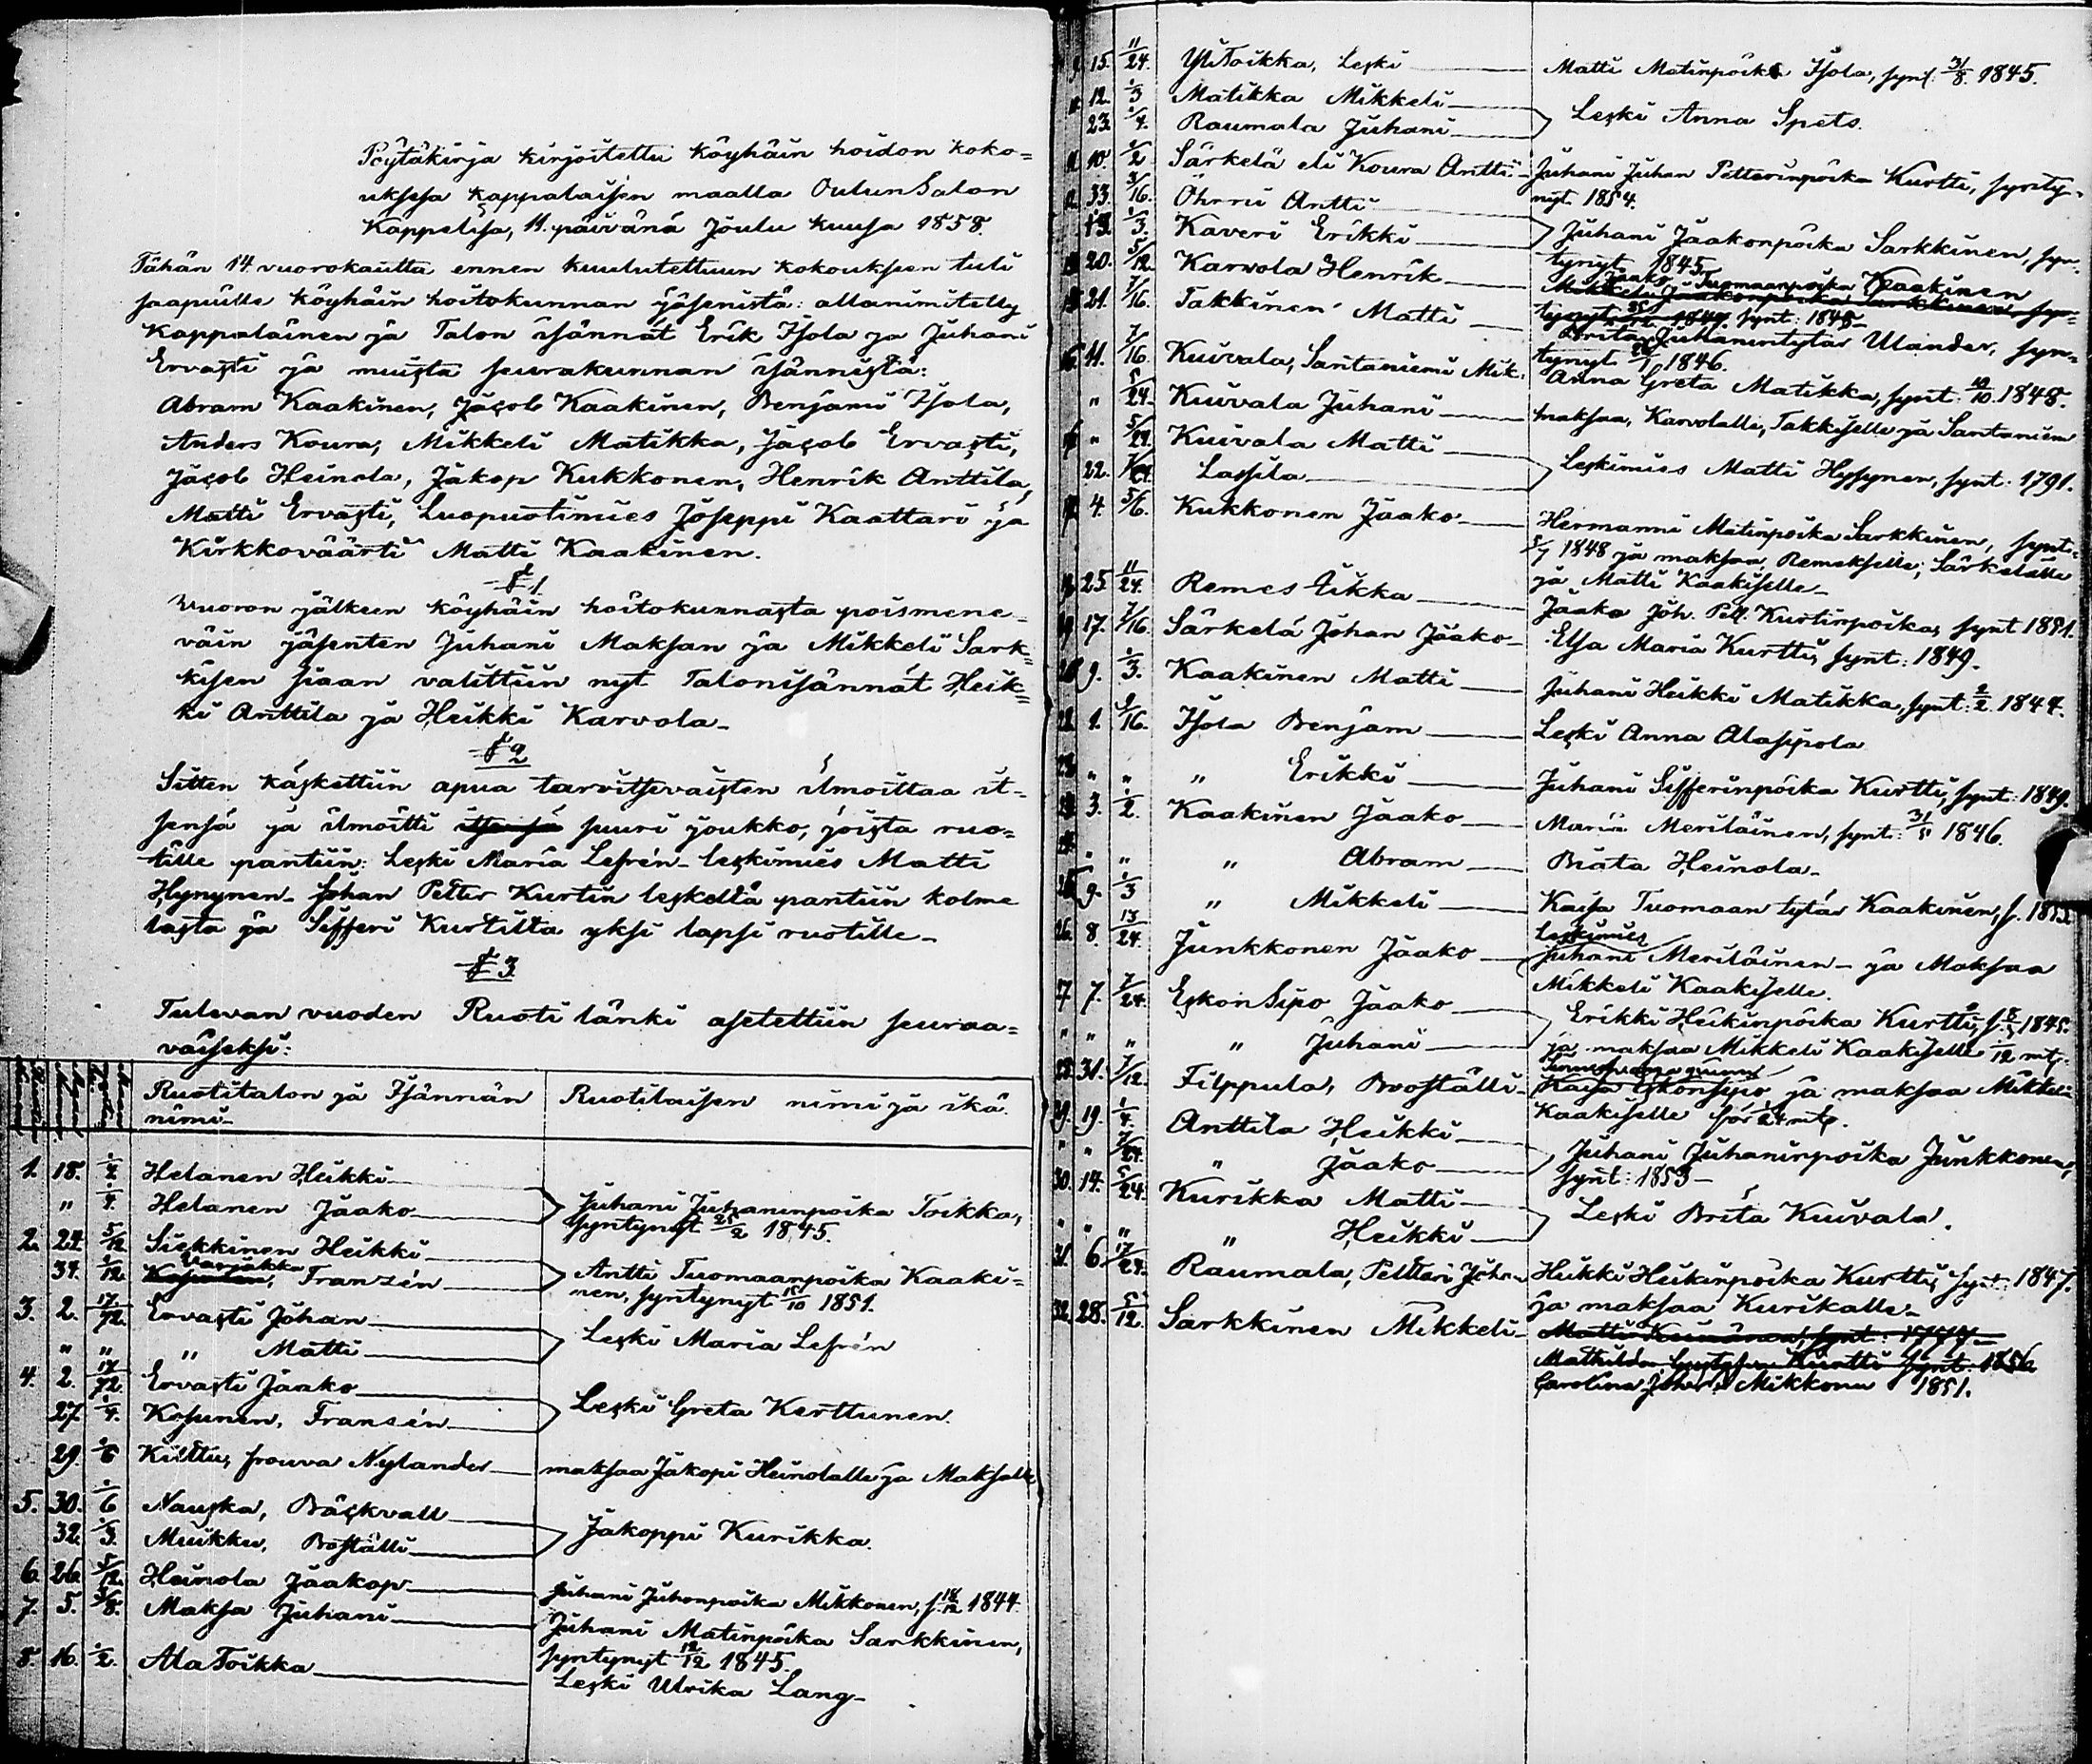 Pöytäkirja kirjoitettu köyhäin hoidon koko=
uksesa kappalaisen maalla Oulun Salon
Kappelisa, 11. päivänä Joulu kuusa 1858.
Tähän 14 vuorokautta ennen kuulutettuun kokouksen tuli
saapuille köyhäin hoitokunnan jäsenistä: allanimitetty
Kappalainen ja Talon isännät Erik Isola ja Juhani
Ervasti ja muista seurakunnan isännistä:
Abram Kaakinen, Jacob Kaakinen, Benjami Isola,
Anders Koura, Mikkeli Matikka, Jacob Ervasti,
Jacob Heinola, Jakop Kukkonen, Henrik Anttila,
Matti Ervasti, Luopuotimies Joseppi Kaattari ja
Kirkkoväärti Matti Kaakinen.
§ 1.
Vuoron jälkeen köyhäin hoitokunnasta poismene=
väin jäsenten Juhani Maksan ja Mikkeli Sark=
kisen siaan valittiin nyt Talonisännät Heik=
ki Anttila ja Heikki Karvola_
§ 2
Sitten käskettiin apua tarvitsevaisten ilmoittaa it=
sensä ja ilmoitti itsensä suuri joukko, joista ruo=
tille pantiin: Leski Maria Lefrén_ leskimies Matti
Hynynen_ Johan Petter Kurtin leskeltä pantiin kolme
lasta ja Sifferi Kurtilta yksi lapsi ruotille_
§ 3.
Tulevan vuoden Ruoti länki asetettiin seuraa=
vaiseksi:
Ruotitalon ja Isännän Ruotilaisen nimi ja ikä.
nimi_
1. 18. 1/2 Helanen Heikki
" 1/4 Helanen Jaako Juhani Juhaninpoika Toikka,
syntynyt 25/2 1845.
2. 24. 5/12 Siekkinen Heikki
34. 1/12 Kosunen, Varjakka Franzén Antti Tuomaanpoika Kaaki=
nen, syntynyt 15/10 1851.
3. 2. 17/72 Ervasti Johan
" " " Matti Leski Maria Lefrén
4. 2. 17/72 Ervasti Jaako
27. 1/4. Kosunen, Fransén Leski Greta Kerttunen.
29. 1/6 Kiiltu, frouva Nylander maksaa Jakopi Heinolalle ja Maksalle
5. 30. 1/6 Nauska, Bäckvall
32. 1/3. Muikku, Boställi Jakoppi Kurikka.
6. 26. 5/12. Heinola Jaakop Juhani Juhonpoika Mikkonen, s. 18/12 1844.
7. 5. 3/8. Maksa Juhani Juhani Matinpoika Sarkkinen,
syntynyt 12/12 1845.
8. 16. 1/2. Ala Toikka Leski Ulrika Lang_
9. 15. 11/24. Yli Toikka, Leski Matti Matinpoika Isola, synt. 31/8. 1845.
12. 1/3 Matikka Mikkeli
23. 1/4. Raumala Juhani Leski Anna Spets.
11. 10. 1/2 Särkelä eli Koura Antti Juhani Juhan Petterinpoika Kurtti, synty=
nyt 1854.
12. 33. 3/16. Öhrni Antti
13. 1/3. Kaveri Erikki Juhani Jaakonpoika Sarkkinen, syn=
tynyt 1845.
20. 5/12. Karvola Henrik Jaako Tuomaanpoika Kaakinen
Mikkeli Jaakonpoika Sarkkinen syn=
15 21. 7/16. Takkinen Matti tynyt 1847. synt: 1848_
Brita Juhanintytär Ulander, syn=
tynyt 26/1 1846.
16. 11. 7/16. Kuivala, Santaniemi Mik. Anna Greta Matikka, synt. 10/10. 1848.
" 5/24. Kuivala Juhani maksaa, Karvolalle, Takkiselle ja Santaniem
" 5/24 Kuivala Matti
22. Lassila Leskimies Matti Hyssynen, synt: 1791.
4. 5/6. Kukkonen Jaako Hermanni Matinpoika Sarkkinen, synt:
5/7 1848 ja maksaa, Remekselle, Särkelälle
ja Matti Kaakiselle_
25 11/24. Remes Tikka Jaako Joh. Pett. Kurtinpoika, synt 1851.
19 17. 7/16. Särkelä Johan Jaako Elsa Maria Kurtti, synt: 1849.
9. 1/3. Kaakinen Matti Juhani Heikki Matikka, synt: 2/2. 1844.
1. 9/16. Isola Benjam Leski Anna Alaspola
" " " Erikki Juhani Sifferinpoika Kurtti, synt: 1849.
3. 1/2. Kaakinen Jaako Maria Meriläinen, synt: 31/5 1846.
" " " Abram Briata Heinola_
9. 1/3 " Mikkeli Kaisa Tuomaan tytär Kaakinen, s. 1853
26. 8. 13/24. Junkkonen Jaako Leskimies
Juhani Meriläinen_ ja Maksaa
Mikkeli Kaakiselle.
7 7. 7/24. Eskon Sipo Jaako Erikki Heikinpoika Kurtti, s. 8/5 1845.
" " " " Juhani ja maksaa Mikkeli Kaakiselle 1/12 mt.
28. 31. 7/12. Filppula, Boställi Kaisa Eskonsipo ja maksaa Mikkeli
Kaakiselle för 1/24 mt.
29. 19. 1/4. Anttila Heikki
" " 7/24. " Jaako Juhani Juhaninpoika Junkkonen,
synt: 1853_
30. 14. 5/24. Kurikka Matti Leski Brita Kuivala.
" " " " Heikki
31. 6. 17/24. Raumala, Petteri Johan Heikki Heikinpoika Kurtti, synt: 1847.
ja maksaa Kurikalle_
32. 28. 5/12. Sarkkinen Mikkeli Matti Kinänen, synt: 1777_
Mathilda Gustafva Kurtti synt. 1856.
Carolina Joh: Mikkonen 1851.